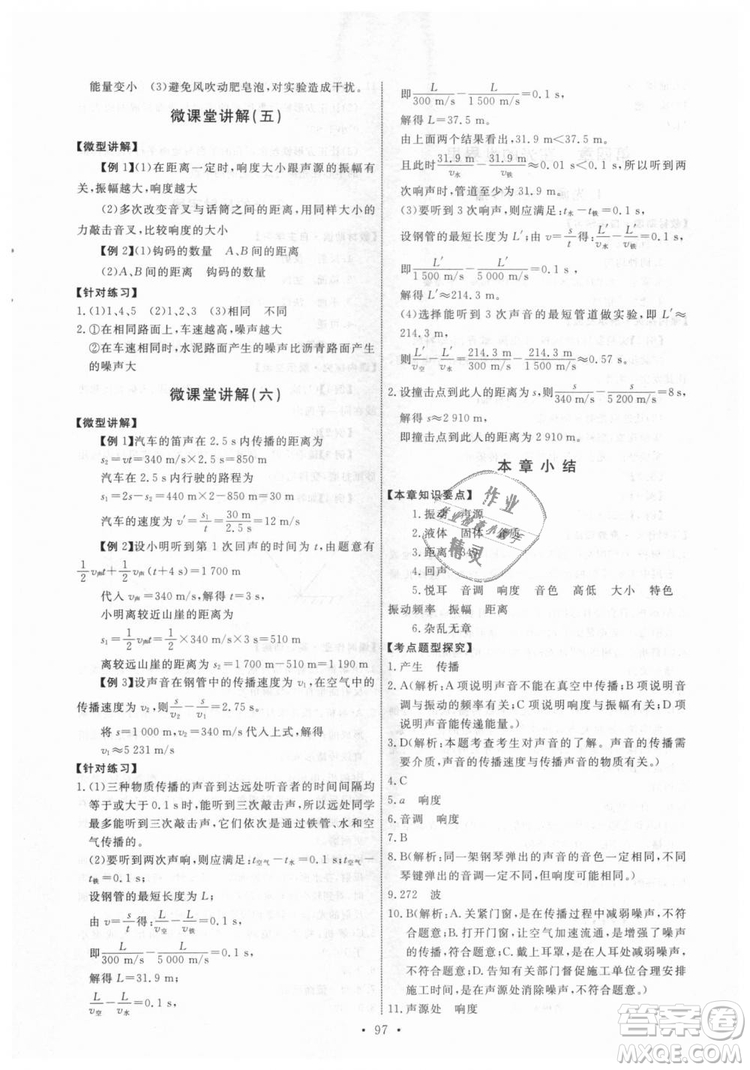 能量变小　(3)避免风吹动肥皂泡,对实验造成干扰。
微课堂讲解(五)
【微型讲解】
【例 1】(1)在距离一定时,响度大小跟声源的振幅有关,振幅越大,响度越大
(2)多次改变音叉与话筒之间的距离,用同样大小的力敲击音叉,比较响度的大小
【例 2】(1)钩码的数量　A、B间的距离
(2)A、B间的距离　钩码的数量
【针对练习】
1.(1)1、4、5　(2)1、2、3　(3)相同　不同
2.①在相同路面上,车速越高,噪声越大
②在车速相同时,水泥路面产生的噪声比沥青路面产生的噪声大
微课堂讲解(六)
【微型讲解】
【例 1】汽车的笛声在 2.5 s内传播的距离为
s₂=vt=340 m/s×2.5 s=850 m
汽车在 2.5 s内行驶的路程为
s₁=2s−s₂=2×440 m−850 m=30 m
汽车的速度为 v′=s₁/t=30 m/2.5 s=12 m/s
【例 2】设小明听到第 1 次回声的时间为 t,由题意有
1/2 v声t+1/2 v声(t+4 s)=1 700 m
代入 v声=340 m/s,解得 t=3 s
小明离较近山崖的距离为
s₁=1/2 v声t=1/2×340 m/s×3 s=510 m
离较远山崖的距离为 s=1 700 m−510 m=1 190 m
【例 3】设声音在钢管中的传播速度为 v₁,在空气中的传播速度为 v₂,则所以 s/v₂−s/v₁=2.75 s。
将 s=1 000 m,v₂=340 m/s 代入上式,解得
v₁≈5 231 m/s
【针对练习】
1.(1)三种物质传播的声音到达远处听音者的时间间隔均等于或大于 0.1 s时,能听到三次敲击声,所以远处同学最多能听到三次敲击声,它们依次是由铁管、水和空气传播的。
(2)要听到两次声响,则 t空气−t水=0.1 s;t空气−t铁=0.1 s
设钢管的最短长度为 L;
由 v=s/t得:L/v空−L/v铁=0.1 s,
即L/340 m/s−L/5 000 m/s=0.1 s,
解得 L=31.9 m;
L/v空−L/v水=0.1 s,
即L/300 m/s−L/1 500 m/s=0.1 s,
解得 L=37.5 m。
由上面两个结果看出,31.9 m＜37.5 m,
此时31.9 m/v水−31.9 m/v铁≈0.01 s＜0.1 s,两次响声重合,管道至少 31.9 m。
(3)要听到 3 次响声,则:t水−t铁=0.1 s
设钢管的最短长度为 L′;由 v=s/t得:L′/v水−L′/v铁=0.1 s,即L′/1 500 m/s−L′/5 000 m/s=0.1 s,
解得 L′≈214.3 m。
(4)选择能听到 3 次声音的最短管道做实验,即 L′≈214.3 m。
则L′/v空−L′/v水=214.3 m/v空−214.3 m/v铁≈0.57 s。
2.设撞击点到此人的距离为 s,则s/340 m/s−s/5 200 m/s=8 s,
解得 s≈2 910 m,
撞击点到此人的距离为 2 910 m。
本章小结
【本章知识要点】
1.振动　声源
2.液体　固体
3.距离
4.回声
5.悦耳　音调　响度　音色　高低　大小　特色　振动频率　振幅　距离
6.杂乱无章
【考点题型探究】
1.产生　传播
2.A(解析:A 项说明声音不能在真空中传播;B 项说明音调与振动的频率有关;C 项说明响度与振幅有关;D 项说明声音能传递能量。)
3.D(解析:本题考查考生对声音的了解。声音的传播需要介质,声音的传播速度与传播声音的物质有关。)
4.C
5.a　响度
6.音调　响度
7.B
8.B(解析:同一架钢琴弹出的声音的音色相同,用不同琴键弹出的音调一定不同,故 B 符合题意。)
9.272　波
10.B(解析:A. 关紧门窗,是在传播过程中减弱噪声,不符合题意。B. 打开门窗,让空气加速流通,不能减弱噪声,符合题意。C. 戴上耳罩,是在人耳处减弱噪声,不符合题意。D. 告知有关部门督促施工单位合理安排施工时间,是在声源处消除噪声,不符合题意。)
11.声源处　响度
97
作业
作业检查小帮手
精灵
答案圈
MXQE.COM